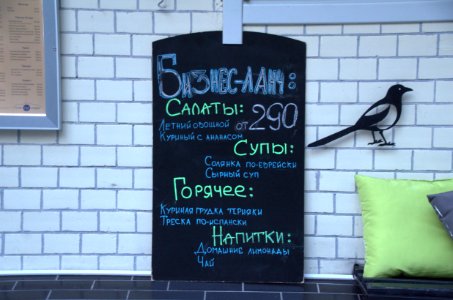 Бизнес-ланч:
Салаты:
от 290
Летний овощной
Куриный с ананасом
Супы:
Солянка по-еврейски
Сырный суп
Горячее:
Куриная грудка терияки
Треска по-испански
Напитки:
Домашние лимонады
Чай